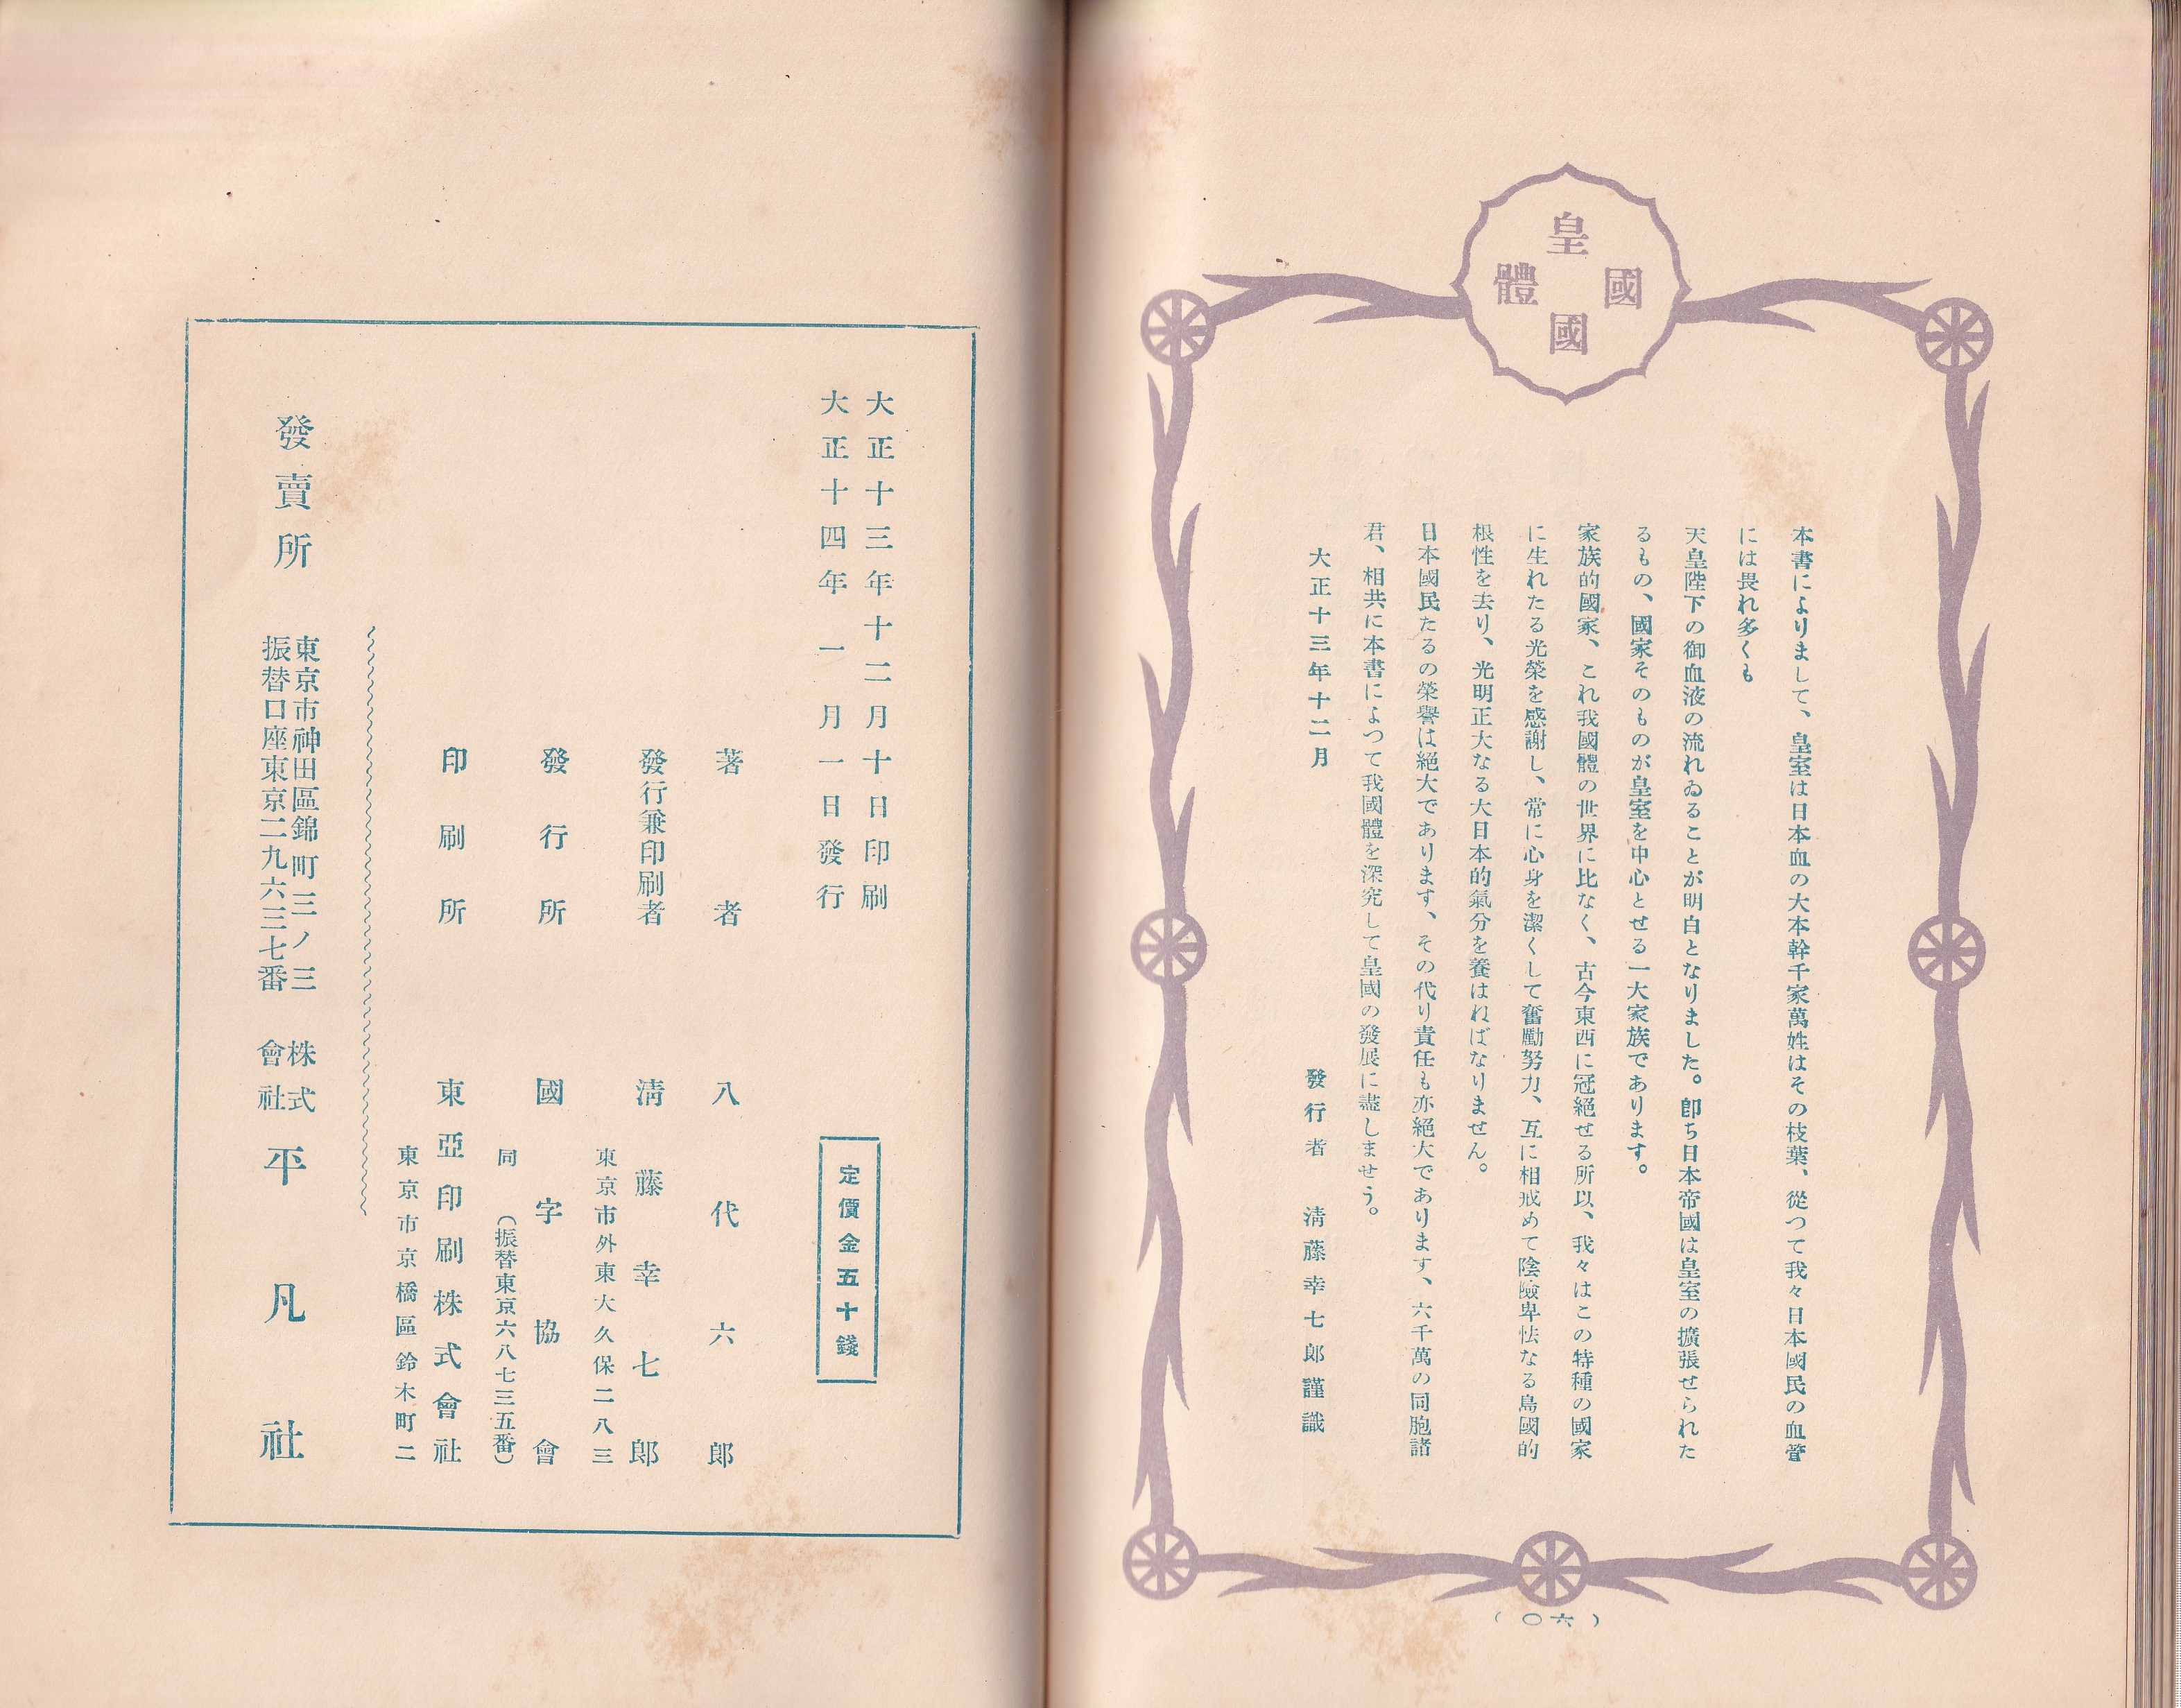 皇國國體
本書によりまして、皇室は日本血の大本幹千家萬姓はその枝葉、從つて我々日本國民の血管
には畏れ多くも
天皇陛下の御血液の流れゐることが明白となりました。卽ち日本帝國は皇室の擴張せられた
るもの、國家そのものが皇室を中心とせる一大家族であります。
家族的國家、これ我國體の世界に比なく、古今東西に冠絕せる所以、我々はこの特種の國家
に生れたる光榮を感謝し、常に心身を潔くして奮勵努力、互に相戒めて陰險卑怯なる島國的
根性を去り、光明正大なる大日本的氣分を養はねばなりません。
日本國民たるの榮譽は絕大であります、その代り責任も亦絕大であります、六千萬の同胞諸
君、相共に本書によつて我國體を深究して皇國の發展に盡しませう。
大正十三年十二月
發行者 淸藤幸七郞謹識
(六〇)
大正十三年十二月十日印刷
大正十四年一月一日發行
定價金五十錢
著者 八代六郞
發行兼印刷者 淸藤幸七郞
東京市外東大久保二八三
發行所 國字協會
同 (振替東京六八七三五番)
印刷所 東亞印刷株式會社
東京市京橋區鈴木町二
發賣所
東京市神田區錦町三ノ三
振替口座東京二九六三七番
株式會社 平凡社